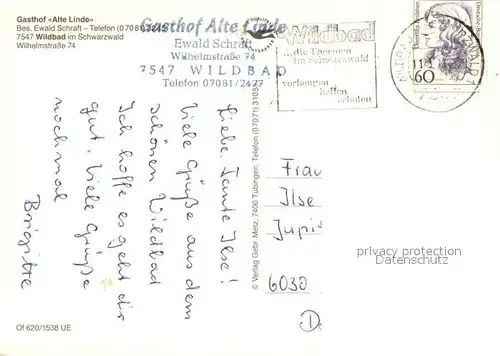 Gasthof »Alte Linde«
Bes. Ewald Schraft – Telefon (07081)
7547 Wildbad im Schwarzwald
Wilhelmstraße 74
Gasthof Alte Linde
Ewald Schraft
Wilhelmstraße 74
7547 WILDBAD
Telefon 07081/2477
Wildbad
...die Thermen
im Schwarzwald
vorbeugen
helfen
erholen
60
Liebe Tante Ilse!
Viele Grüße aus dem
schönen Wildbad
Ich hoffe es geht dir
gut. Viele Grüße
nochmal
Brigitte
© Verlag Gebr. Metz, 7400 Tübingen, Telefon (07071) 31055
Frau
Ilse
6030
privacy protection
Datenschutz
Of 620/1538 UE